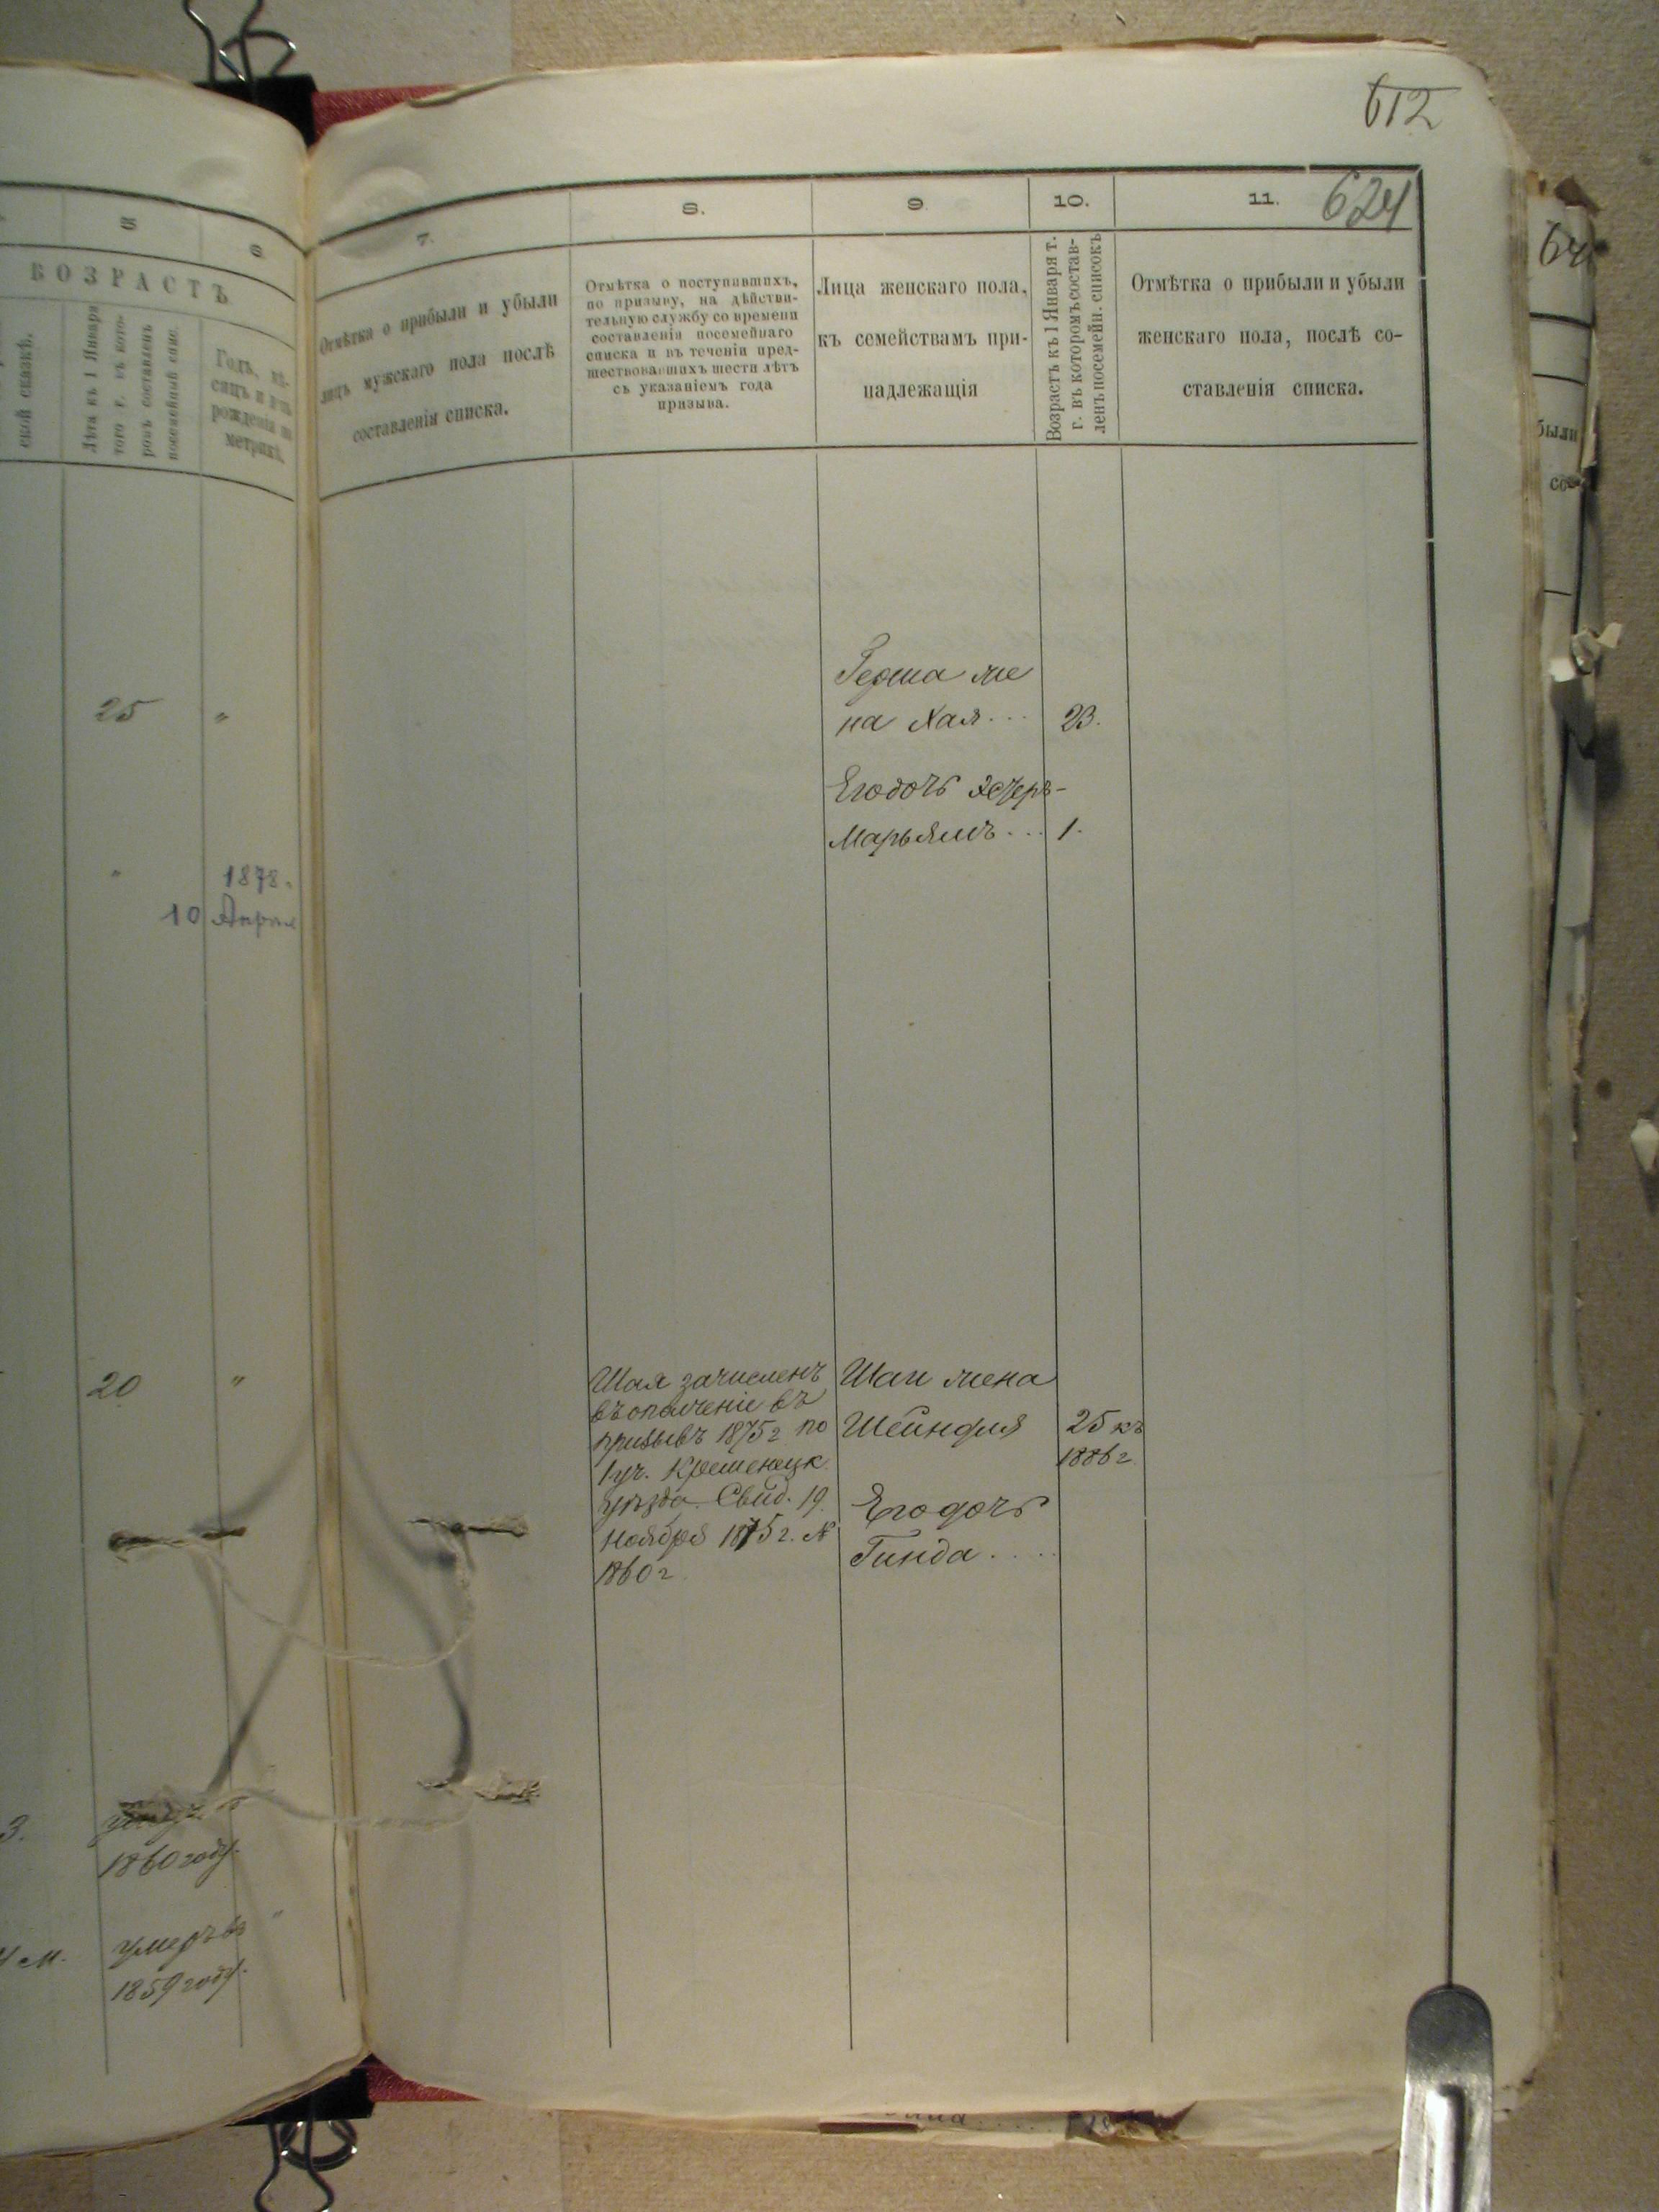 612
624
5
6
ВОЗРАСТЪ
ской сказкѣ.
Лѣта къ 1 Января
того г. въ кото-
ромъ составленъ
посемейный спис.
Годъ, мѣ-
сяцъ и день
рожденія по
метрикѣ.
25 "
" 1878.
10 Апрѣля
20 "
3.
1860 году.
4 м. умеръ въ "
1859 году.
7.
8.
9
10.
11.
Отмѣтка о прибыли и убыли
лицъ мужскаго пола послѣ
составленія списка.
Отмѣтка о поступавшихъ,
по призыву, на дѣйстви-
тельную службу со времени
составленія посемейнаго
списка и въ теченіи пред-
шествовавшихъ шести лѣтъ
съ указаніемъ года
призыва.
Лица женскаго пола,
къ семействамъ при-
надлежащія
Возрастъ къ 1 Января т.
г. въ которомъ состав-
ленъ посемейн. списокъ
Отмѣтка о прибыли и убыли
женскаго пола, послѣ со-
ставленія списка.
Герша же
на Хая... 23.
Его дочь Эстеръ-
Марьямъ... 1.
Шая зачисленъ
въ ополченіе въ
призывъ 1875 г по
1 уч. Кременецк.
уѣзда. Свид. 19.
Ноября 1875 г. №
1860 г.
Шаи жена
Шейндля 25 къ
1886 г.
Его дочь
Гинда....
были
со-